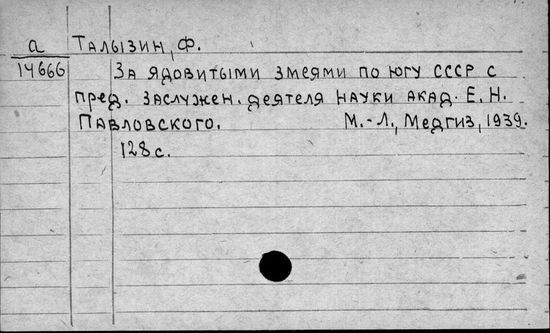 а Талызин, Ф.
14666 За ядовитыми змеями по югу СССР с
пред. заслужен. деятеля науки акад. Е. Н.
Павловского. М.-Л., Медгиз, 1939.
128 с.